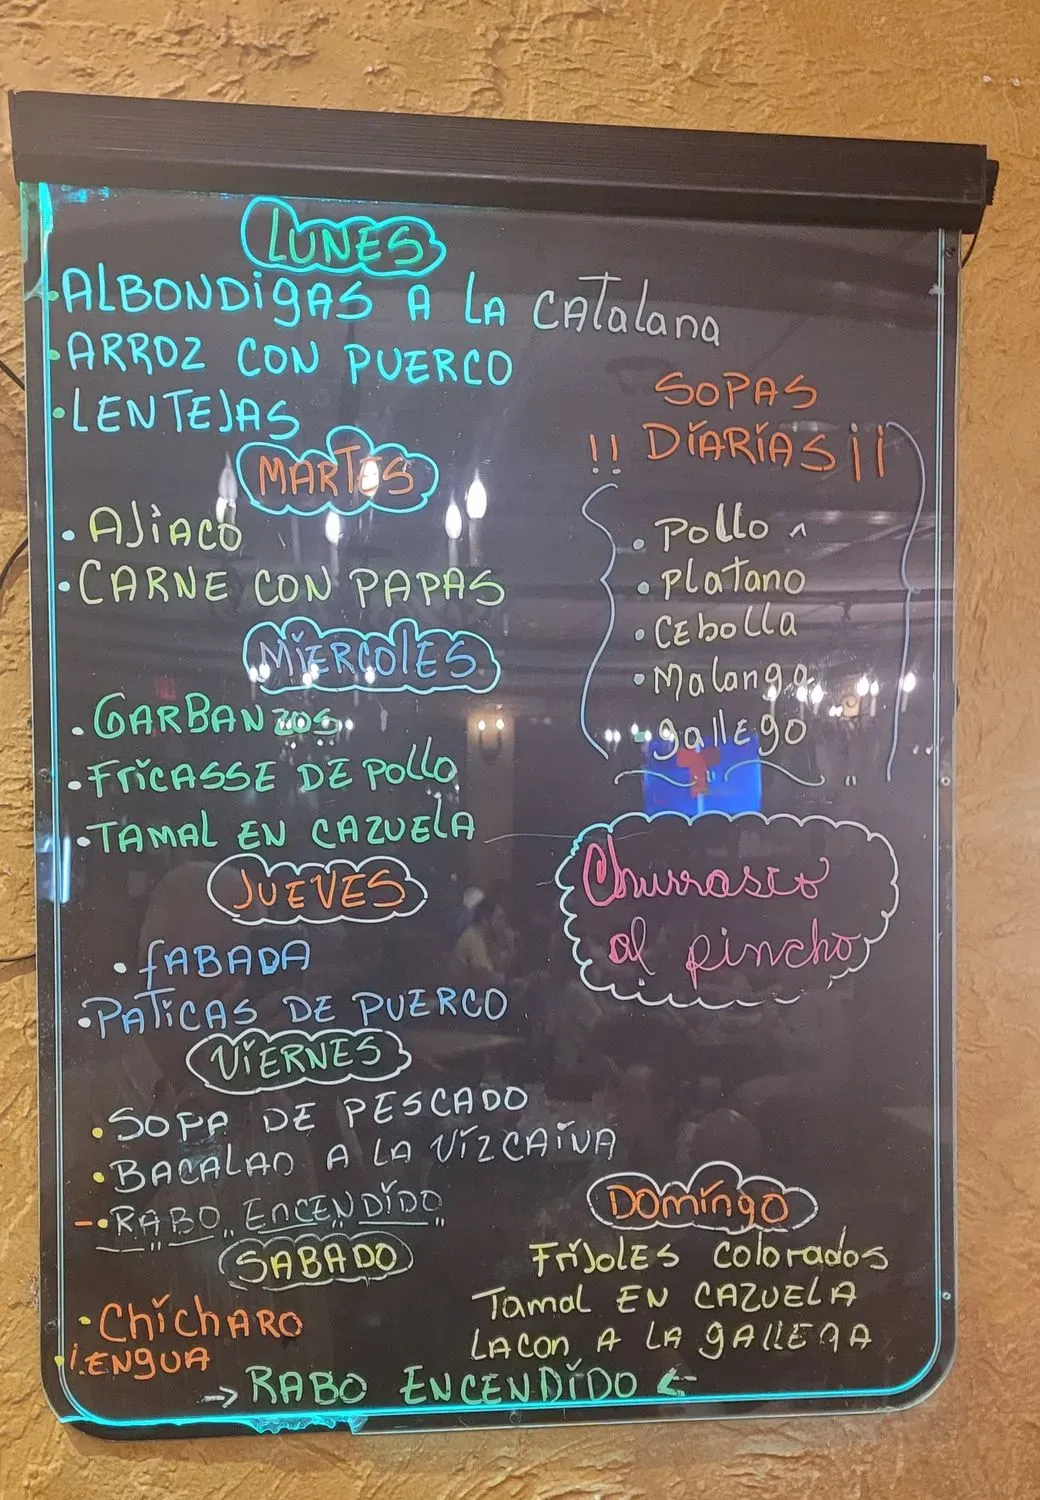 LUNES
·ALBONDIGAS A LA CATalana
·ARROZ CON PUERCO
·LENTEJAS
MARTES
·AJIACO
·CARNE CON PAPAS
MIERCOLES
·GARBANZOS
·FRICASSE DE POLLO
·TAMAL EN CAZUELA
JUEVES
·fABADA
·PATICAS DE PUERCO
VIERNES
·SOPA DE PESCADO
·BACALAO A LA VIZCAINA
-·RABO ENCENDIDO
SABADO
·CHICHARO
·LENGUA
SOPAS
!! DIARIAS ¡¡
·Pollo
·Platano
·CEbolla
·Malanga
·gallEgo
Churrasco
al pincho
DOmingo
FRIJOLES COlOrados
Tamal EN CAZUELA
LACON A LA gALLEGA
→ RABO ENCENDIDO ←